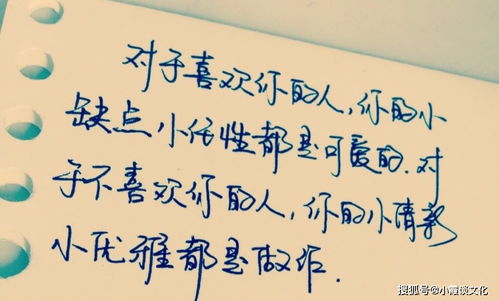 对于喜欢你的人,你的小
缺点小任性都是可爱的.对
于不喜欢你的人,你的小清新
小优雅都是做作.
搜狐号@小霞谈文化